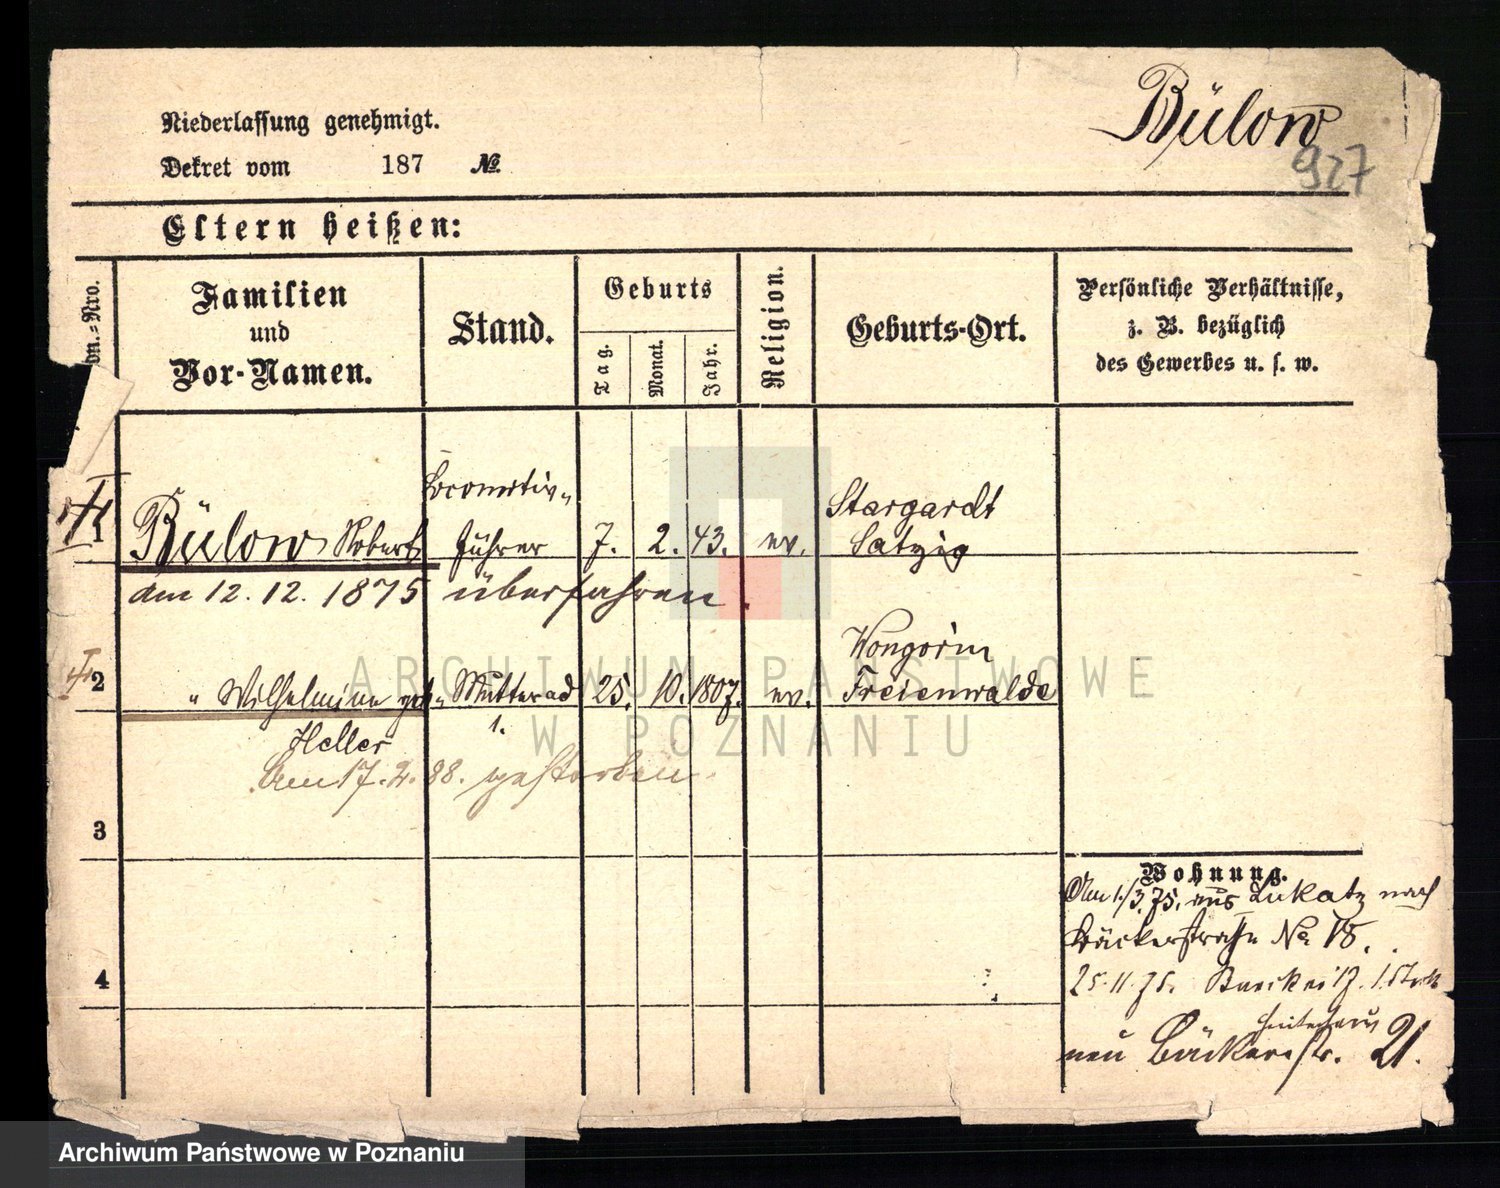 Bülow
927
Niederlassung genehmigt.
Dekret vom 187 №
Eltern heißen:
Nro.
Familien
und
Vor-Namen.
Stand.
Geburts
Tag.
Monat.
Jahr.
Religion.
Geburts-Ort.
Persönliche Verhältnisse,
z. B. bezüglich
des Gewerbes u. s. w.
Locomotiv-
Stargardt
1 Bülow Robert führer 7. 2. 43. ev. Satzig
am 12. 12. 1875 überfahren.
Wongorin
2 " Wilhelmine geb. 25. 10. 1807. ev. Freienwalde
Heller
Am 17. 2. 88. gestorben.
3
Wohnung.
Am 1./3. 75. aus Lukatz nach
Bäckerstraße No 18.
4
25. 11. 75. 17.
hinterhaus
neu Bäckerstr. 21.
ARCHIWUM PAŃSTWOWE
W POZNANIU
Archiwum Państwowe w Poznaniu